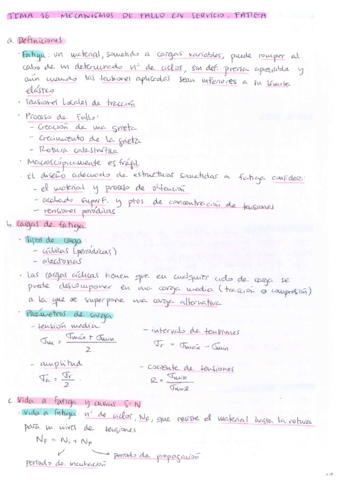 TEMA 16 MECANISMOS DE FALLO EN SERVICIO: FATIGA
a. Definiciones
· Fatiga: un material, sometido a cargas variables, puede romper al
cabo de un determinado nº de ciclos, sin def. previa apreciable y
aún cuando las tensiones aplicadas sean inferiores a su límite
elástico
· Tensiones locales de tracción
· Proceso de fallo:
- Creación de una grieta
- Crecimiento de la grieta
- Rotura catastrófica
· Macroscópicamente es frágil
· El diseño adecuado de estructuras sometidas a fatiga considera:
- el material y proceso de obtención
- acabado superf. y ptos de concentración de tensiones
- tensiones periódicas
b. Cargas de fatiga
· Tipos de carga
- cíclicas (periódicas)
- aleatorias
· Las cargas cíclicas tienen que en cualquier ciclo de carga se
puede descomponer en una carga media (tracción o compresión)
a la que se superpone una carga alternativa
· Parámetros de carga
- tensión media
σm = σmáx + σmin / 2
- intervalo de tensiones
σr = σmáx - σmin
- amplitud
σa = σr / 2
- cociente de tensiones
R = σmin / σmáx
c. Vida a fatiga y curvas S-N
· Vida a fatiga nº de ciclos, NF, que resiste el material hasta la rotura
para un nivel de tensiones
NF = Ni + Np
periodo de incubación
periodo de propagación